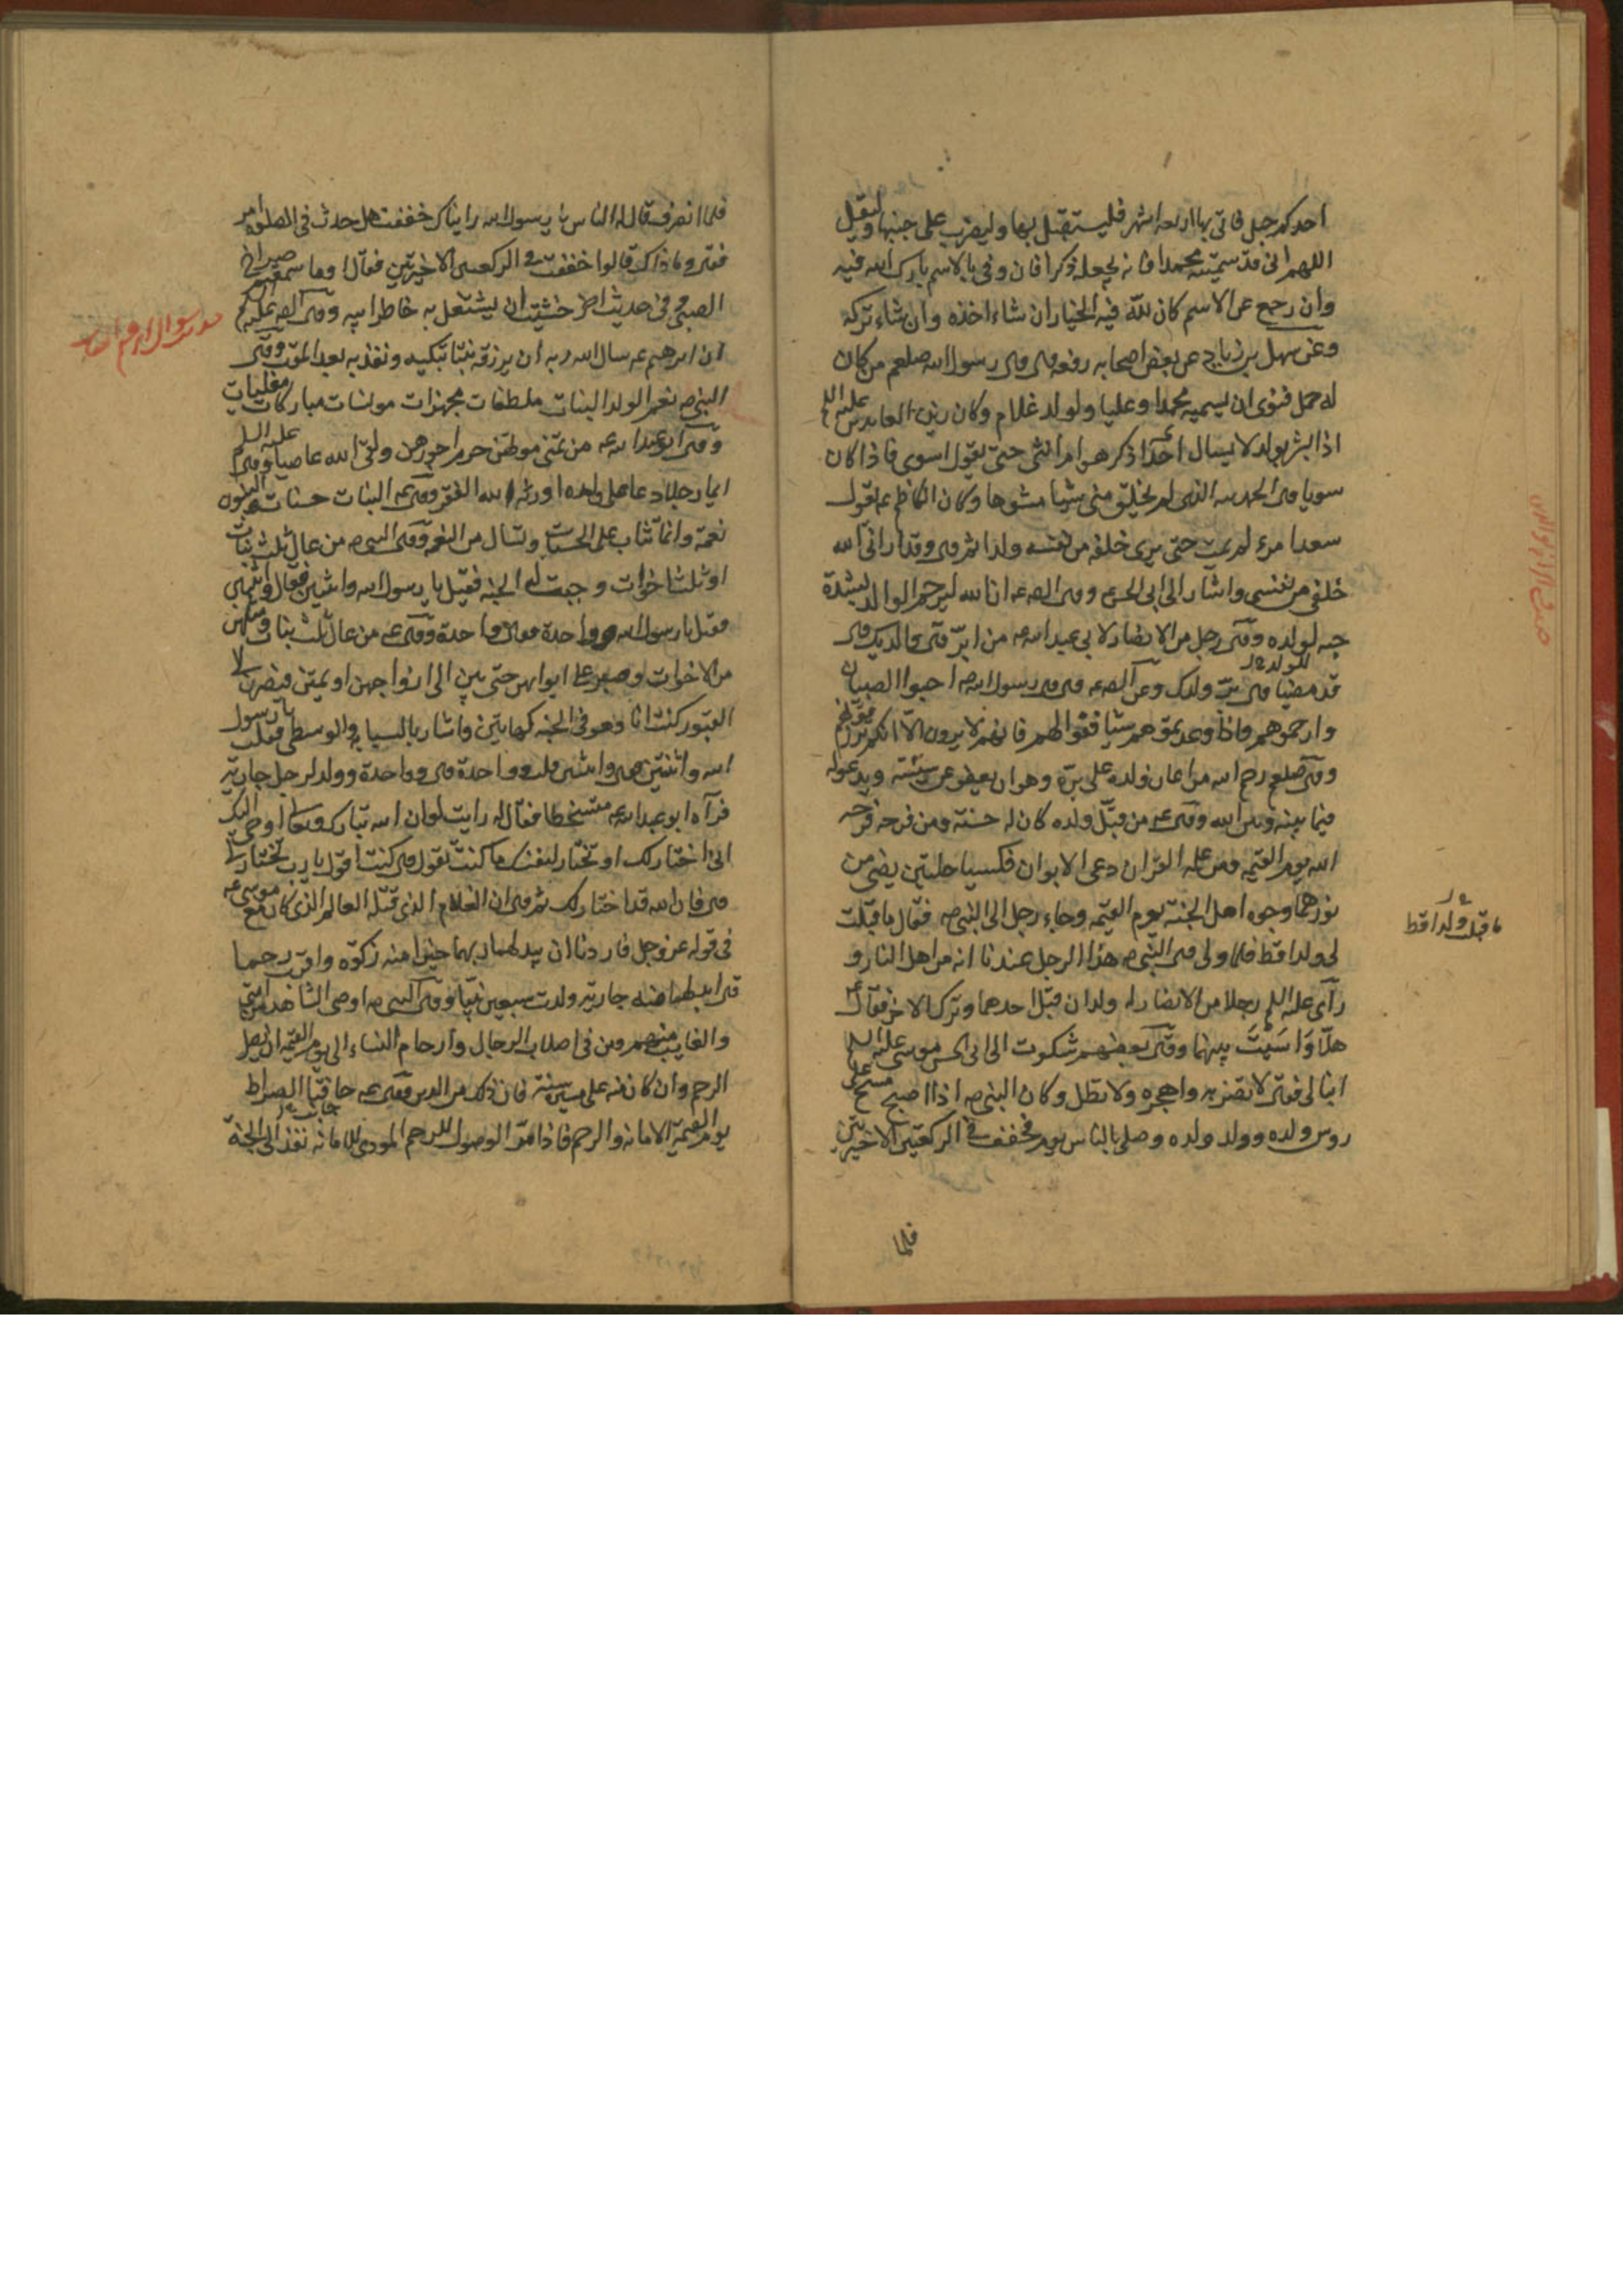 احدكم حبل فاتى بها اربعه اشهر فليستقبل بها وليضرب على جنبها وليقل
اللهم انى قد سميته محمدا فانه يجعله ذكرا فان وفى بالاسم بارك الله فيه
وان رجع عن الاسم كان لله فيه الخيار ان شاء اخذه وان شاء تركه
وعن سهل بن زياد عن بعض اصحابه رفعه قال قال رسول الله صلعم من كان
له حمل فنوى ان يسميه محمدا وعليا ولد له غلام وكان زين العابدين عليه السلم
اذا بشر بولد لا يسال احدا ذكر هو ام انثى حتى يقول اسوى فاذا كان
سويا قال الحمد لله الذى لم يخلق منى شيا مشوها وكان الكاظم عه يقول
سعد امرء لم يمت حتى يرى خلفه من نفسه ولدا ثم قال وقد ارانى الله
خلفى من نفسى واشار الى ابى الحسن وقال الصه عه ان الله ليرحم الوالد لشدة
حبه لولده وقال رجل من الانصار لابى عبد الله عه من ابر قال والديك قال
قد مضيا قال بر ولدك وعن الصه عه قال قال رسول الله صه احبوا الصبيان
وارحموهم واذا وعدتموهم شيا ففوا لهم فانهم لا يرون الا انكم ترزقونهم
وقال صلعم رحم الله من اعان ولده على بره وهو ان يعفو عن سيئته ويدعو له
فيما بينه وبين الله وقال عه من قبل ولده كان له حسنة ومن فرحه فرحه
الله يوم القيمه ومن علمه القران دعى الابوان فكسيا حلتين يضئ من
نورهما وجوه اهل الجنة يوم القيمه وجاء رجل الى النبى صه فقال ما قبلت
لى ولدا قط فلما ولى قال النبى صه هذا الرجل عندنا انه من اهل النار و
راى عليه السلم رجلا من الانصار له ولدان قبل احدهما وترك الاخر فقال عه
هلا وَاسَيْتَ بينهما وقال بعضهم شكوت الى ابى الحسن موسى عليه السلم
ابنا لى فقال لا تضربه واهجره ولا تطل وكان النبى صه اذا اصبح مسح على
روس ولده وولد ولده وصلى بالناس يوم فخفف فى الركعتين الاخيرتين
فلما
ما قبلت ولدا قط
فلما انصرف قال له الناس يا رسول الله رايناك خففت هل حدث فى الصلوه امر
فقال وما ذاك قالوا خففت فى الركعتين الاخيرتين فقال اوما سمعتم صراخ
الصبى وفى حديث اخر خشيت ان يشتغل به خاطر ابيه وقال الصه عليه السلم
ان ابرهيم عه سال الله ربه ان يرزقه بنتا تبكيه وتندبه بعد الموت وقال
النبى صه نعم الولد البنات ملطفات مجهزات مونسات مباركات مفليات
وقال ابو عبد الله عه من تمنى موتهن حرم اجرهن ولقى الله عاصيا وقال عليه السلم
ايما رجل دعا على ولده اورثه الله الفقر وقال عه البنات حسنات والبنون
نعمة وانما تثاب على الحسنات وتسال من النعم وقال النبى صه من عال ثلث بنات
او ثلث اخوات وجبت له الجنه فقيل يا رسول الله واثنين فقال واثنين
فقيل يا رسول الله وواحدة فقال وواحدة وقال عه من عال ثلث بنات ومثلهن
من الاخوات وصبر على ايوائهن حتى يبن الى ازواجهن او يمتن فيصرن الى
القبور كنت انا وهو فى الجنه كهاتين واشار بالسبابه والوسطى فقلت يا رسول
الله واثنتين قال واثنتين قلت وواحدة قال وواحدة وولد لرجل جارية
فرآه ابو عبد الله عه متسخطا فقال له رايت لو ان الله تبارك وتعالى اوحى اليك
انى اختار لك او تختار لنفسك ما كنت تقول قال كنت اقول يا رب تختار لى
قال فان الله قد اختار لك ثم قال ان الغلام الذى قتله العالم الذى كان مع موسى عه
فى قوله عز وجل فاردنا ان يبدلهما ربهما خيرا منه زكوة واقرب رحما
قال ابدلهما منه جارية ولدت سبعين نبيا وقال النبى صه اوصى الشاهد من امتى
والغايب منهم ومن فى اصلاب الرجال وارحام النساء الى يوم القيمه ان يصل
الرحم وان كان منه على مسيرة سنة فان ذلك من الدين وقال عه حافتا الصراط
يوم القيمة الامانه والرحم فاذا مر الوصول للرحم المودى للامانه نفذ الى الجنة